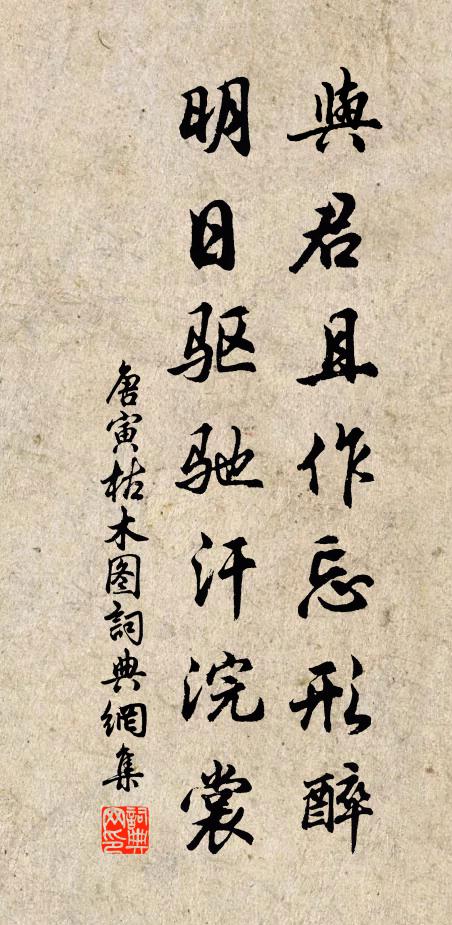 與君且作忘形醉
明日驱驰汗浣裳
唐寅枯木图詞典網集
詞典網印